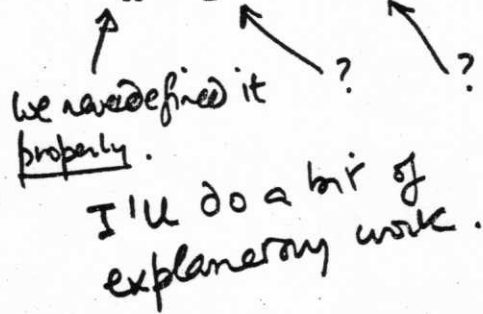 we never defined it ? ?
properly.
I'll do a bit of
explanatory work.